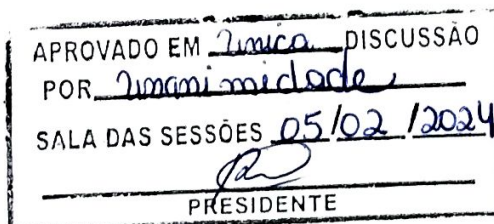 APROVADO EM Unica DISCUSSÃO
POR Unanimidade
SALA DAS SESSÕES 05/02/2024
PRESIDENTE